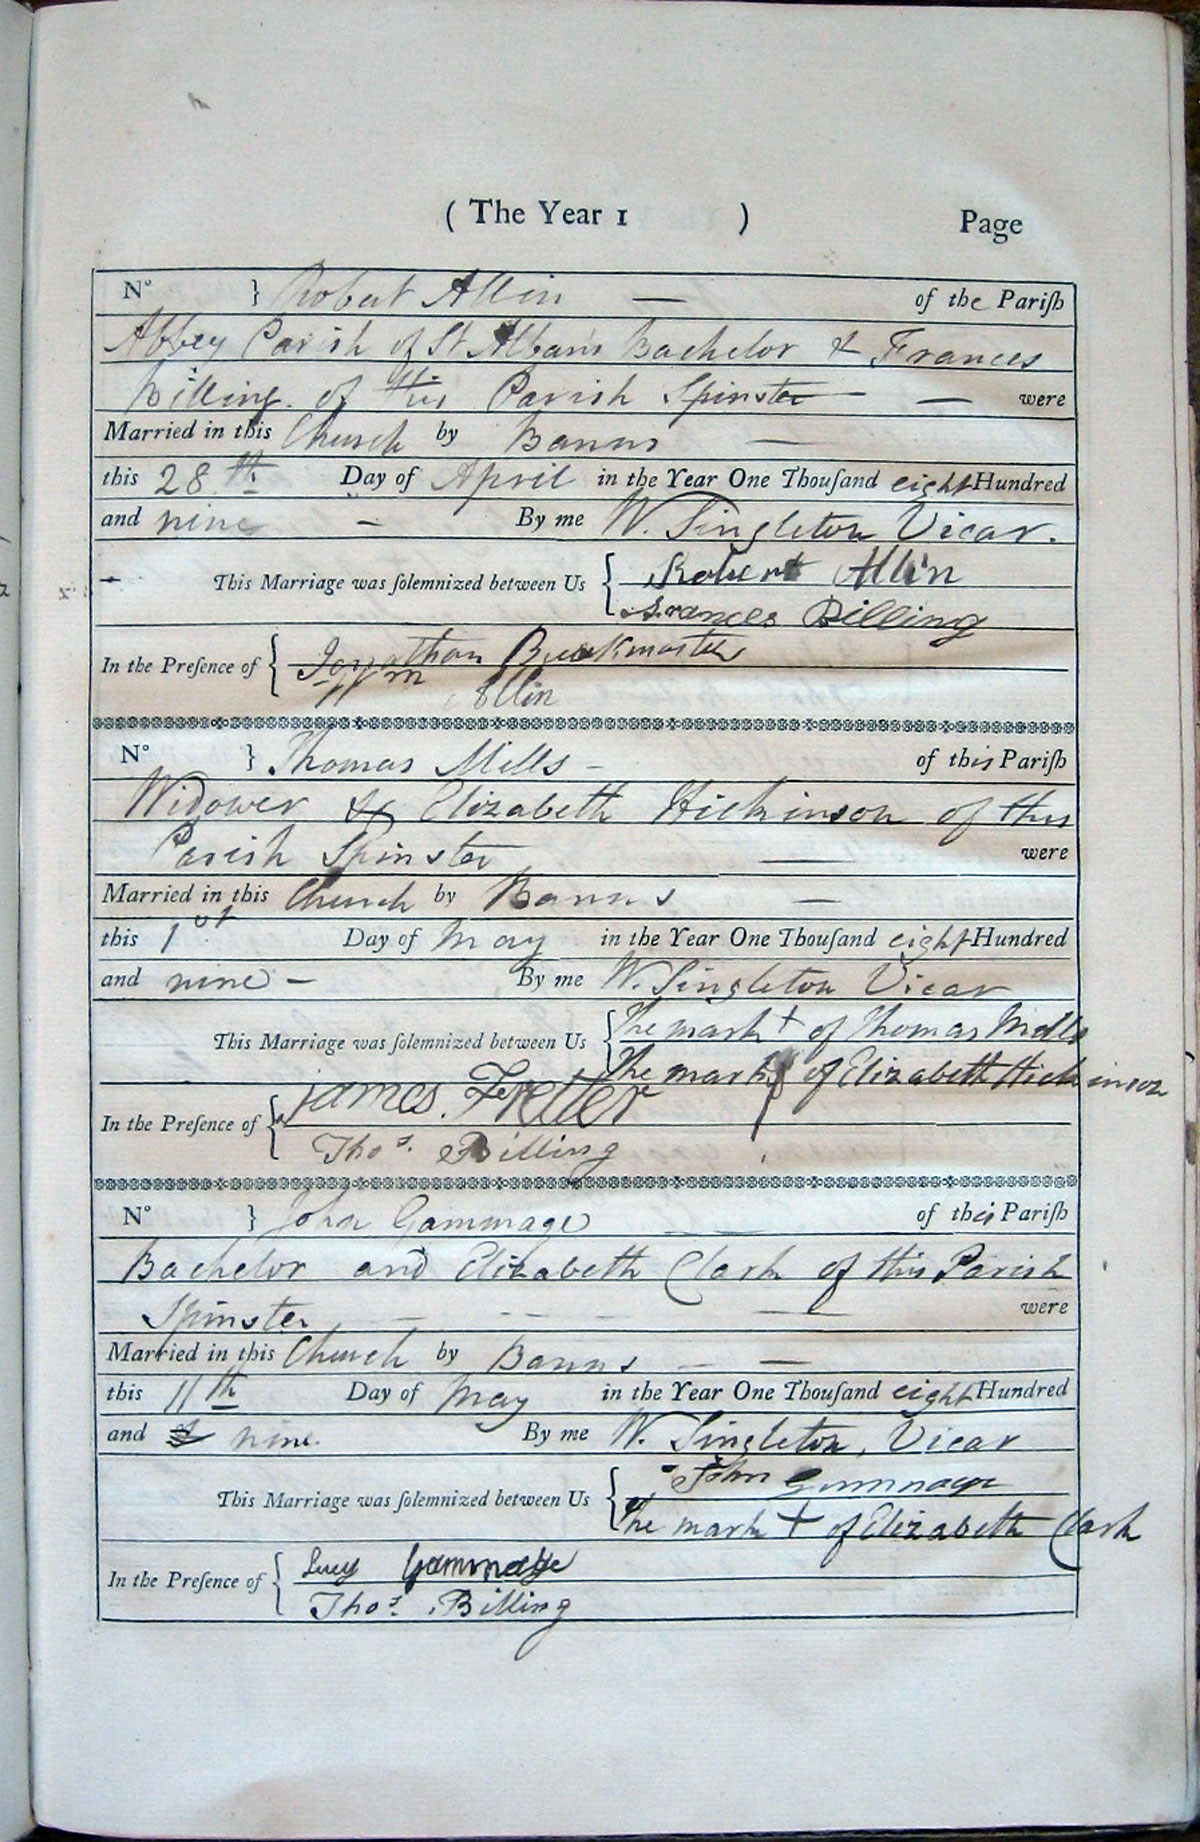 ( The Year 1 ) Page
No } Robert Allin — of the Pariſh
Abbey Parish of St Alban's Bachelor & Frances
Billing of this Parish Spinster — were
Married in this Church by Banns —
this 28th Day of April in the Year One Thouſand eight Hundred
and nine — By me W. Singleton Vicar.
This Marriage was ſolemnized between Us { Robert Allin
Frances Billing
In the Preſence of { Jonathan Buckmaster
Wm Allin
No } Thomas Mills — of this Pariſh
Widower & Elizabeth Hickinson of this
Parish Spinster — were
Married in this Church by Banns —
this 1st Day of May in the Year One Thouſand eight Hundred
and nine — By me W. Singleton Vicar
This Marriage was ſolemnized between Us { The mark + of Thomas Mills
The mark of Elizabeth Hickinson
In the Preſence of { James
Thos. Billing
No } John Gammage of this Pariſh
Bachelor and Elizabeth Clark of this Parish
Spinster — were
Married in this Church by Banns —
this 11th Day of May in the Year One Thouſand eight Hundred
and nine. By me W. Singleton, Vicar
This Marriage was ſolemnized between Us { John Gammage
The mark + of Elizabeth Clark
In the Preſence of { Lucy Gammage
Thos. Billing